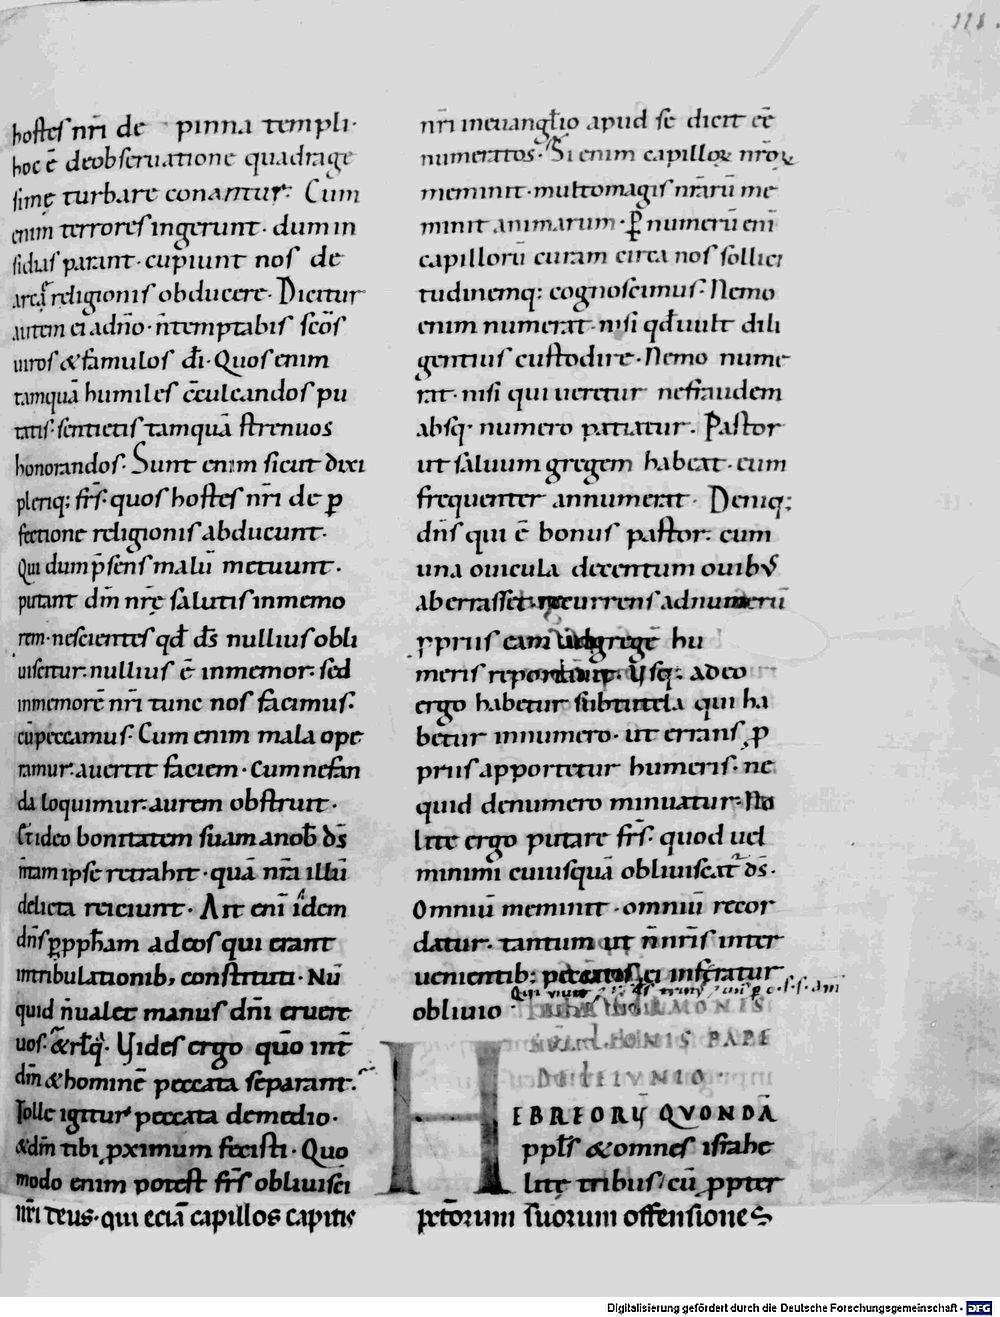 118.
hostes nr̄i de pinna templi·
hoc ē deobseruatione quadrage
simę turbare conantur: Cum
enim terrores ingerunt· dum in
sidias parant· cupiunt nos de
arca religionis obducere· Dicitur
autem ei ad dn̄o· n̄temptabis sc̄os
uiros &famulos dī· Quos enim
tamquā humiles c̄culcandos pu
tatis· sentietis tamquā strenuos
honorandos· Sunt enim sicut dixi
pleriq; fr̄s· quos hostes nr̄i de ꝑ
fectione religionis abducunt·
Qui dum p̄sens malū metuunt·
putant dm̄ nr̄ę salutis inmemo
rem· nescientes qd̄ ds̄ nullius obli
uiscitur· nullius ē inmemor· sed
inmemorē nr̄i tunc nos facimus·
cū peccamus· Cum enim mala ope
ramur· auertit faciem· Cum nefan
da loquimur· aurem obstruit·
Et ideo bonitatem suam a nob̄ ds̄
ipse retrahit· quā nr̄a illū
delicta reiciunt· Ait enī idem
dn̄s ꝑ pph̄am ad eos qui erant
intribulationib; constituti· Nū
quid n̄ ualet manus dn̄i eruere
uos· &rt̄q̄· Uides ergo quō int̄
dm̄ & hominē peccata separant·
Tolle igitur peccata demedio·
&dm̄ tibi ꝓximum fecisti· Quo
modo enim potest fr̄s obliuisci
nr̄i deus· qui eciā capillos capitis
nr̄i ineuangl̄io apud se dicit eē
numeratos· Si enim capilloꝝ nr̄oꝝ
meminit· multomagis nr̄arū me
minit animarum· ꝑ numerū enī
capillorū curam circa nos sollici
tudinemq; cognoscimus· Nemo
enim numerat· nisi qd̄ uult dili
gentius custodire· Nemo nume
rat· nisi qui ueretur nefraudem
absq· numero patiatur· Pastor
ut saluum gregem habeat· eum
frequenter annumerat· Deniq;
dn̄s qui ē bonus pastor· cum
una ouicula decentum ouibus
aberrasset· recurrens adnumerū
ꝓpriis eam adgregē hu
meris reportauit· Usq; adeo
ergo habetur subtutela qui ha
betur innumero· ut errans ꝓ
priis apportetur humeris· ne
quid denumero minuatur· No
lite ergo putare fr̄s· quod uel
minimi cuiusquā obliuiscat̄ ds̄·
Omniū meminit· omniū recor
datur· tantum ut n̄ nr̄is inter
uenientib; peccatis ei inferatur
obliuio Qui uiuit
SERMONIS
LEONIS PAPE
DE IEIVNIO·
HEBREORŪ QVONDĀ
ppl̄s &omnes israhe
litę tribus/ cū ꝓpter
pctōrum suorum offensiones
Digitalisierung gefördert durch die Deutsche Forschungsgemeinschaft - DFG